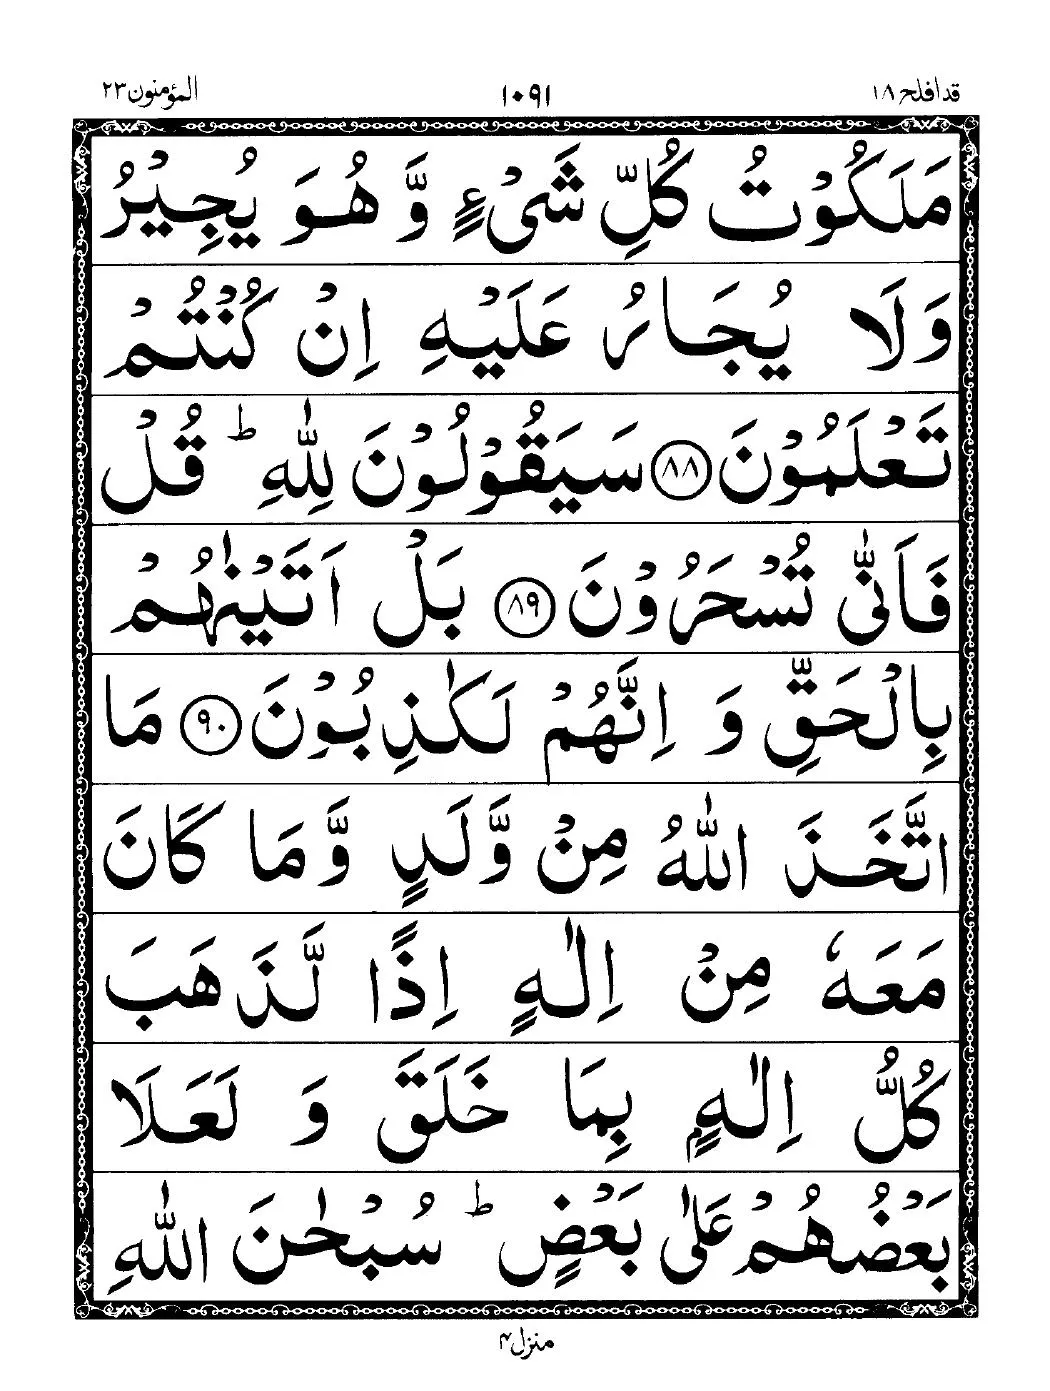 قد افلح ١٨ ١٠٩١ المؤمنون ٢٣
مَلَكُوْتُ كُلِّ شَیْءٍ وَّ هُوَ یُجِیْرُ
وَلَا یُجَارُ عَلَیْهِ اِنْ كُنْتُمْ
تَعْلَمُوْنَ ٨٨ سَیَقُوْلُوْنَ لِلّٰهِ ؕ قُلْ
فَاَنّٰی تُسْحَرُوْنَ ٨٩ بَلْ اَتَیْنٰهُمْ
بِالْحَقِّ وَ اِنَّهُمْ لَكٰذِبُوْنَ ٩٠ مَا
اتَّخَذَ اللّٰهُ مِنْ وَّلَدٍ وَّ مَا كَانَ
مَعَهٗ مِنْ اِلٰهٍ اِذًا لَّذَهَبَ
كُلُّ اِلٰهٍۭ بِمَا خَلَقَ وَ لَعَلَا
بَعْضُهُمْ عَلٰی بَعْضٍ ؕ سُبْحٰنَ اللّٰهِ
منزل ۴